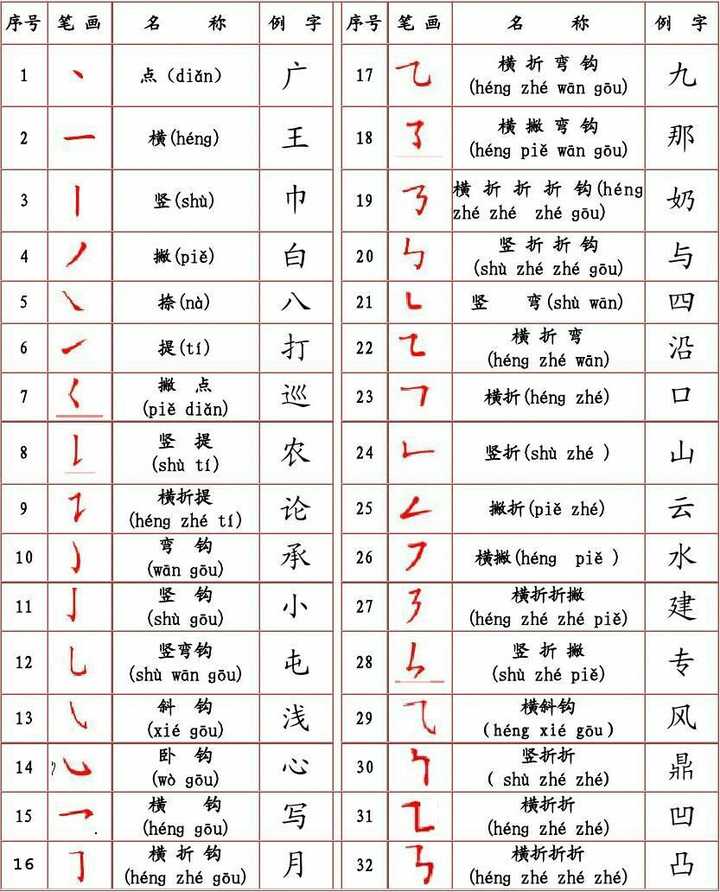 序号 笔 画 名 称 例 字
1 点 (diǎn) 广
2 横(héng) 王
3 竖(shù) 巾
4 撇(piě) 白
5 捺(nà) 八
6 提(tí) 打
7 撇 点 巡
(piě diǎn)
8 竖 提 农
(shù tí)
9 横折提 论
(héng zhé tí)
10 弯 钩 承
(wān gōu)
11 竖 钩 小
(shù gōu)
12 竖弯钩 屯
(shù wān gōu)
13 斜 钩 浅
(xié gōu)
14 卧 钩 心
(wò gōu)
15 横 钩 写
(héng gōu)
16 横 折 钩 月
(héng zhé gōu)
序号 笔 画 名 称 例 字
17 横 折 弯 钩 九
(héng zhé wān gōu)
18 横 撇 弯 钩 那
(héng piě wān gōu)
19 横 折 折 折 钩(héng 奶
zhé zhé zhé gōu)
20 竖 折 折 钩 与
(shù zhé zhé gōu)
21 竖 弯(shù wān) 四
22 横 折 弯 沿
(héng zhé wān)
23 横折(héng zhé) 口
24 竖折(shù zhé ) 山
25 撇折(piě zhé) 云
26 横撇(héng piě ) 水
27 横折折撇 建
(héng zhé zhé piě)
28 竖 折 撇 专
(shù zhé piě)
29 横斜钩 风
(héng xié gōu)
30 竖折折 鼎
( shù zhé zhé)
31 横折折 凹
(héng zhé zhé)
32 横折折折 凸
(héng zhé zhé zhé)